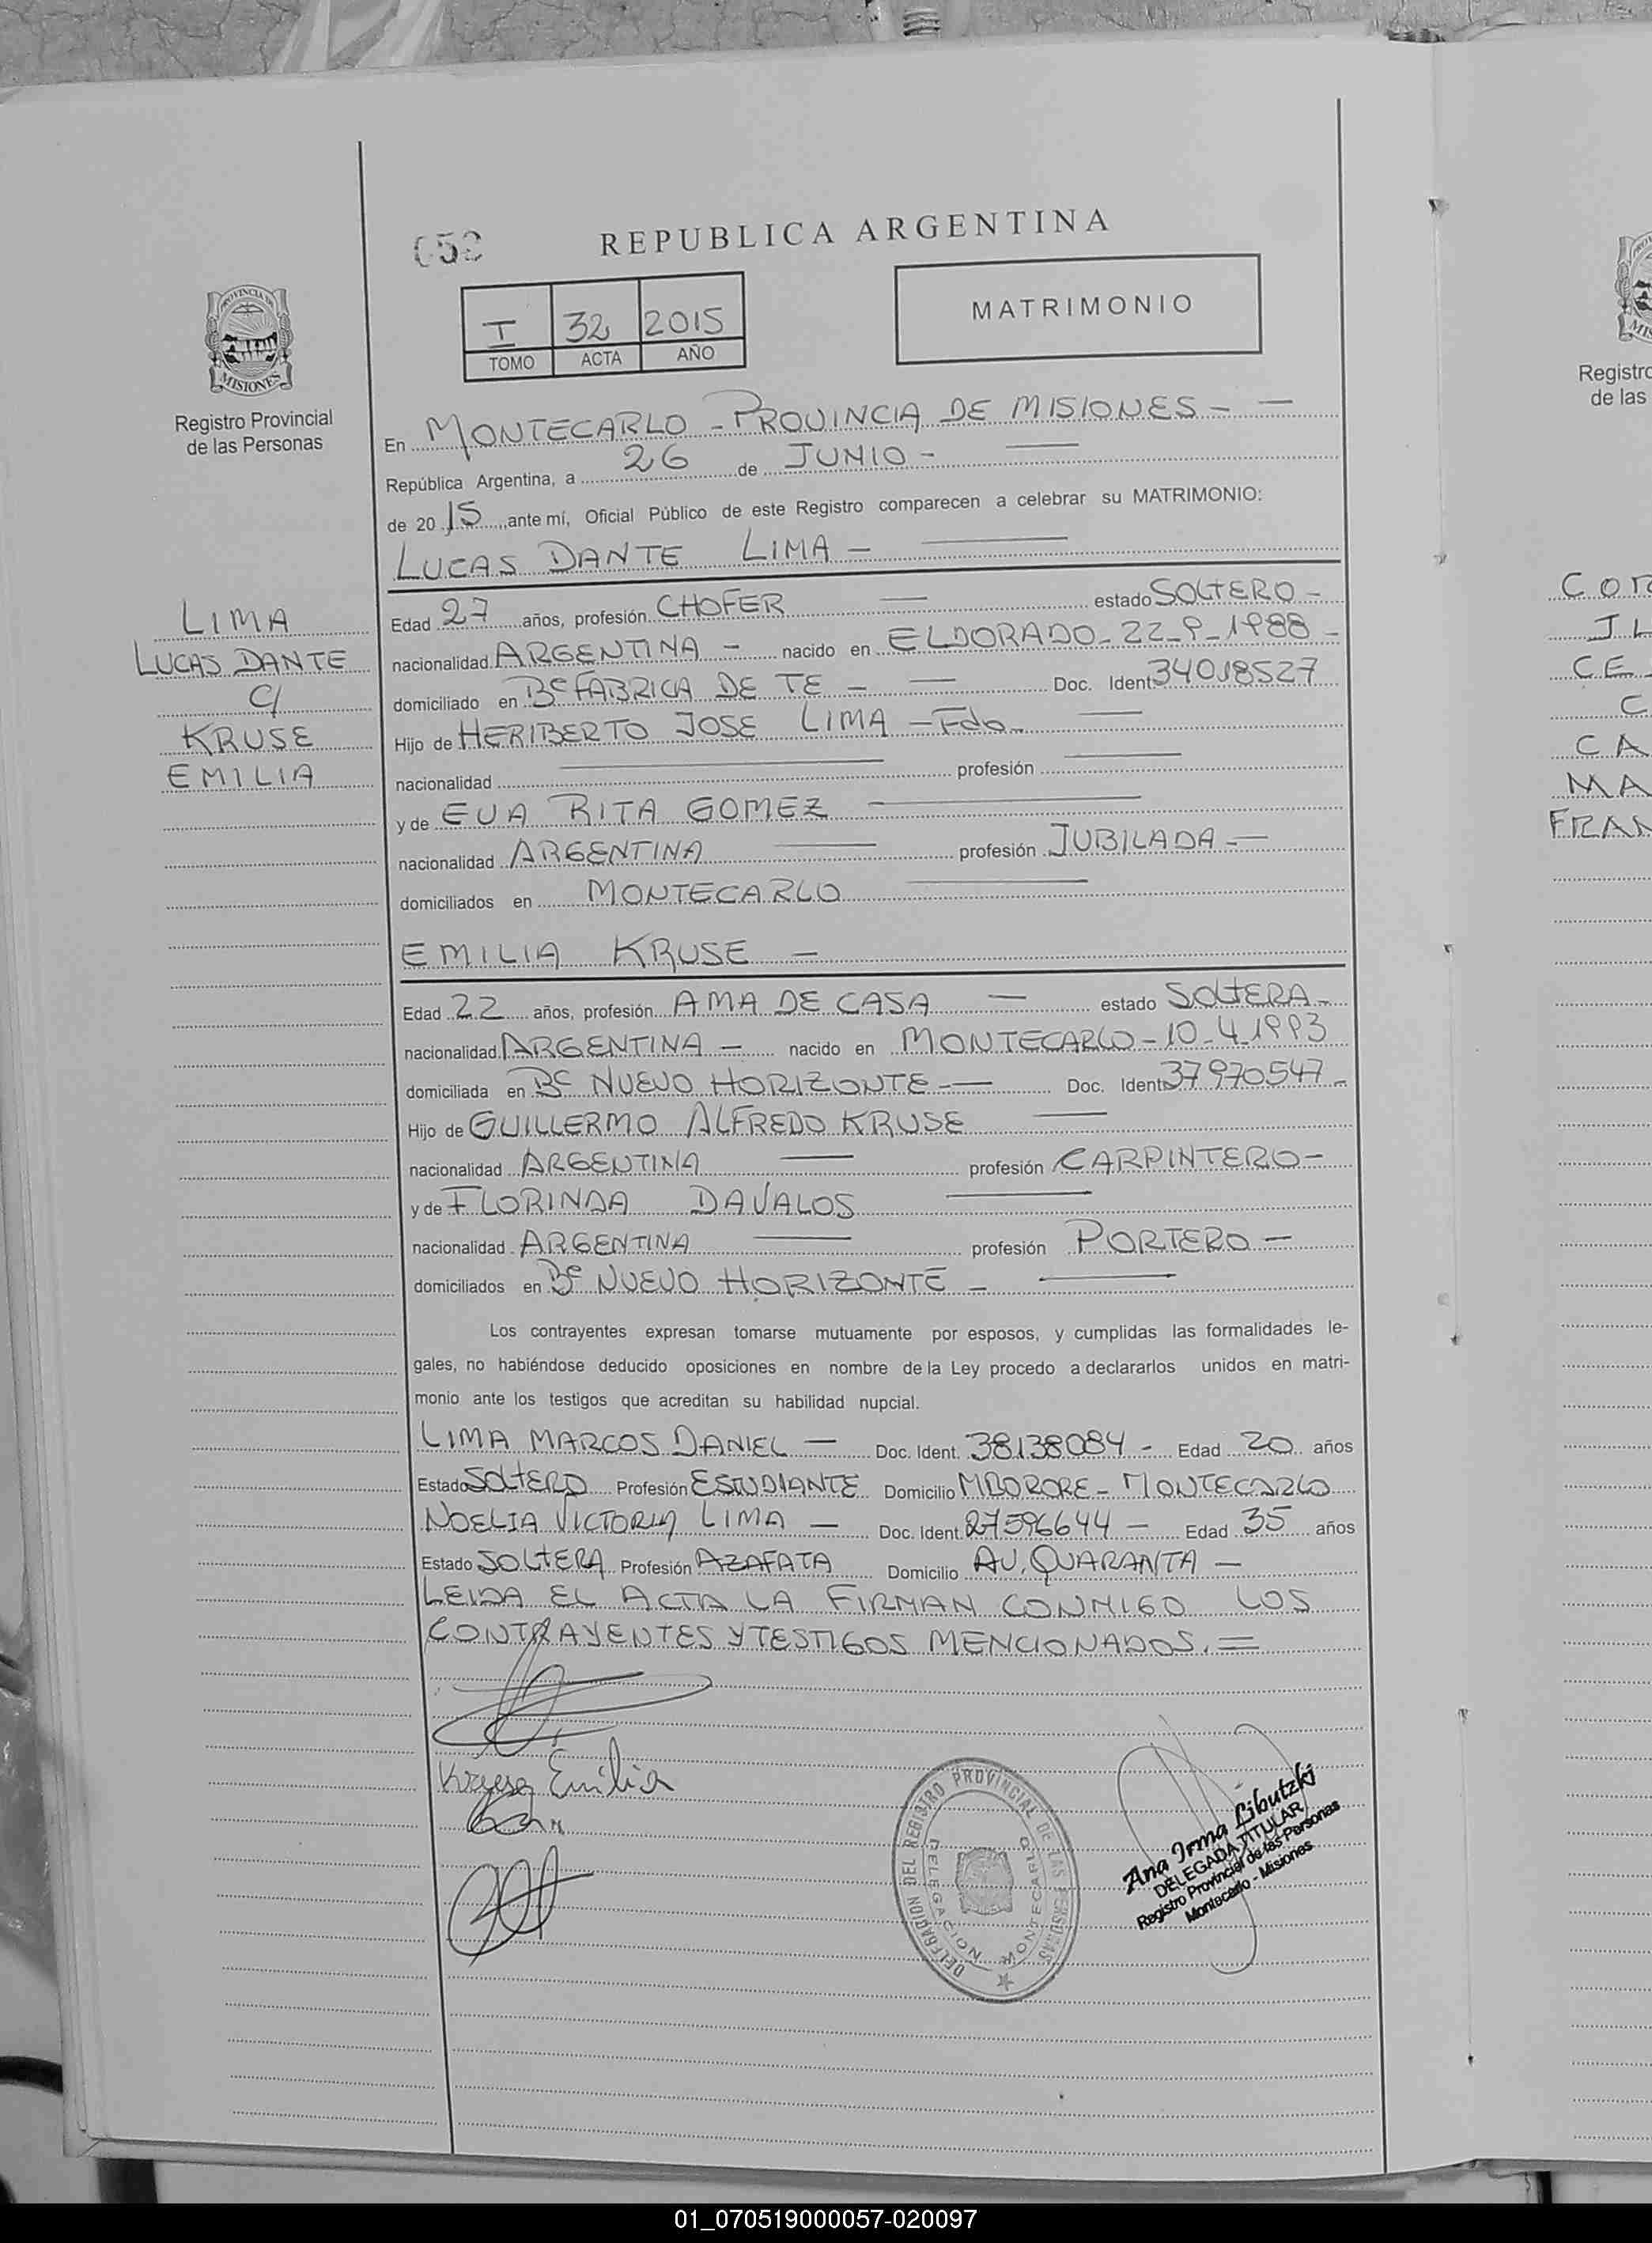 052
REPUBLICA ARGENTINA
I 32 2015
TOMO ACTA AÑO
MATRIMONIO
PROVINCIA DE
MISIONES
Registro Provincial
de las Personas
En MONTECARLO - PROVINCIA DE MISIONES -
República Argentina, a 26 de JUNIO -
de 20 15, ante mí, Oficial Público de este Registro comparecen a celebrar su MATRIMONIO:
LUCAS DANTE LIMA -
LIMA
LUCAS DANTE
C/
KRUSE
EMILIA
Edad 27 años, profesión CHOFER estado SOLTERO -
nacionalidad ARGENTINA - nacido en ELDORADO - 22-9-1988 -
domiciliado en Bº FABRICA DE TE - Doc. Ident. 34018527
Hijo de HERIBERTO JOSE LIMA - Fdo -
nacionalidad profesión
y de EVA RITA GOMEZ
nacionalidad ARGENTINA profesión JUBILADA -
domiciliados en MONTECARLO
EMILIA KRUSE -
Edad 22 años, profesión AMA DE CASA - estado SOLTERA -
nacionalidad ARGENTINA - nacido en MONTECARLO - 10-4-1993
domiciliada en Bº NUEVO HORIZONTE - Doc. Ident. 37970547 -
Hijo de GUILLERMO ALFREDO KRUSE
nacionalidad ARGENTINA profesión CARPINTERO -
y de FLORINDA DAVALOS
nacionalidad ARGENTINA profesión PORTERO -
domiciliados en Bº NUEVO HORIZONTE -
Los contrayentes expresan tomarse mutuamente por esposos, y cumplidas las formalidades le-
gales, no habiéndose deducido oposiciones en nombre de la Ley procedo a declararlos unidos en matri-
monio ante los testigos que acreditan su habilidad nupcial.
LIMA MARCOS DANIEL - Doc. Ident. 38138084 - Edad 20 años
Estado SOLTERO Profesión ESTUDIANTE Domicilio MBORORE - MONTECARLO
NOELIA VICTORIA LIMA - Doc. Ident. 27596644 - Edad 35 años
Estado SOLTERA Profesión AZAFATA Domicilio AV. QUARANTA -
LEIDA EL ACTA LA FIRMAN CONMIGO LOS
CONTRAYENTES Y TESTIGOS MENCIONADOS. =
Kruse Emilia
DELEGACION DEL REGISTRO PROVINCIAL DE LAS PERSONAS
DELEGACION MONTECARLO
Ana Irma Libutzki
DELEGADA TITULAR
Registro Provincial de las Personas
Montecarlo - Misiones
Registro
de las
COR
J L
CE
C
CA
MA
FRAN
01_070519000057-020097